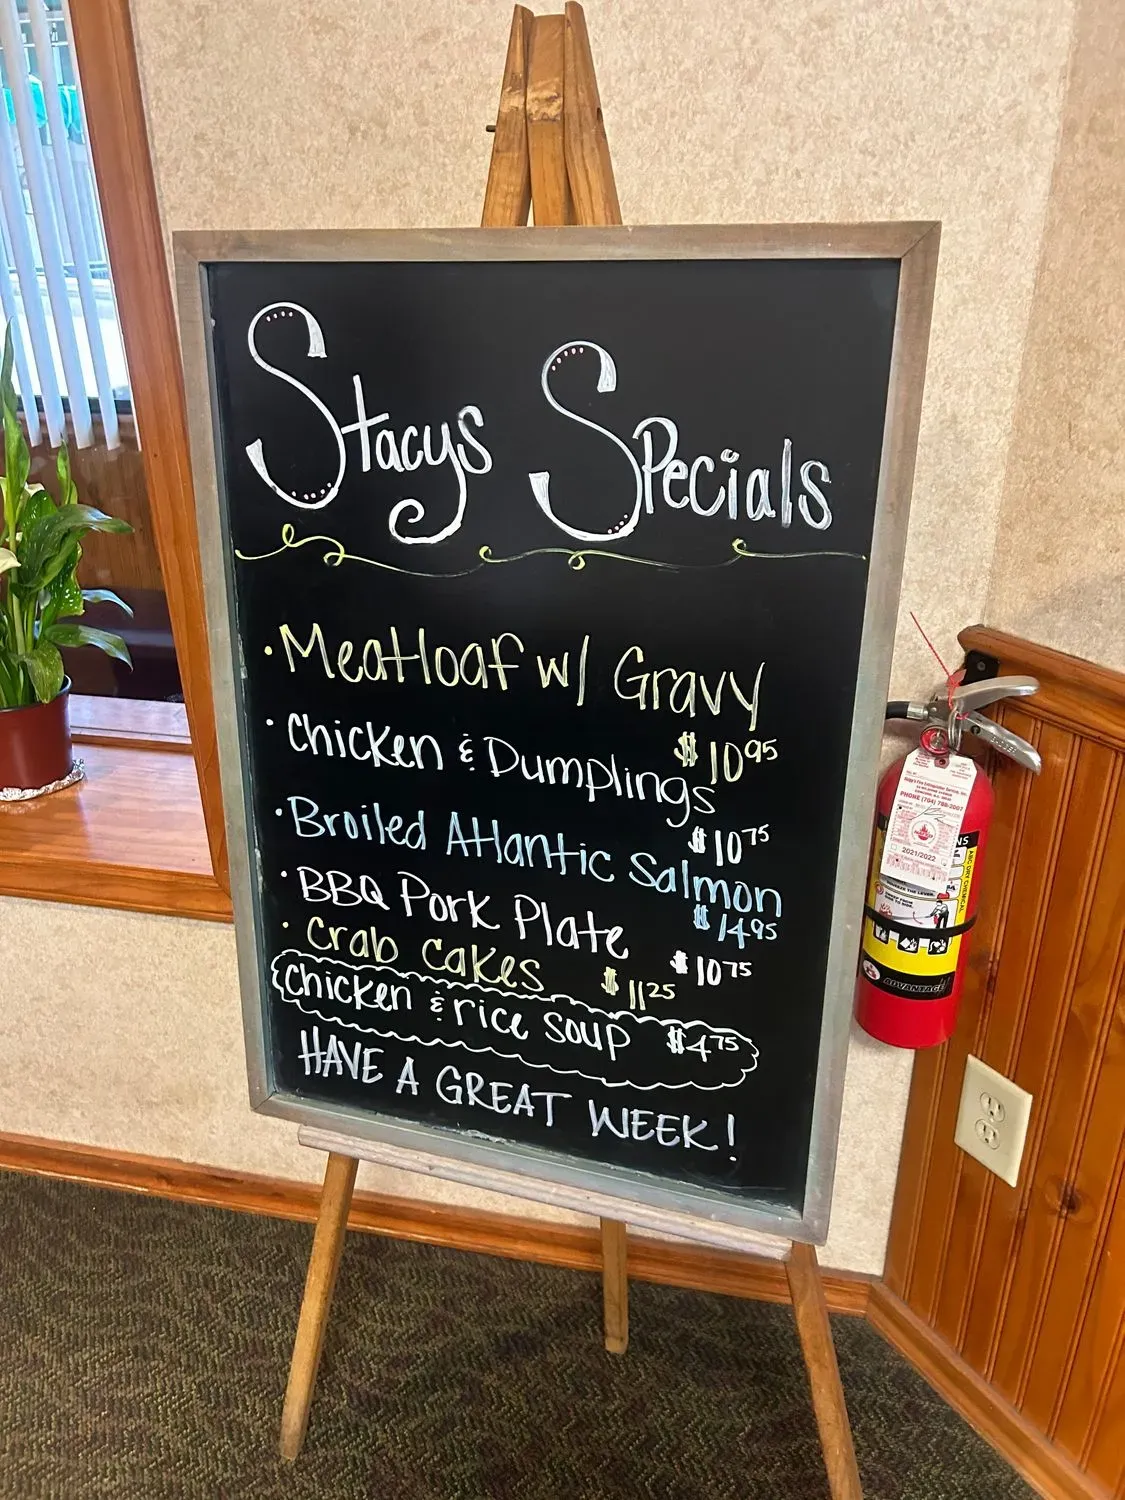 Stacys Specials
· Meatloaf w/ Gravy
$10.95
· Chicken & Dumplings
$10.75
· Broiled Atlantic Salmon
$14.95
· BBQ Pork Plate
$10.75
· Crab Cakes $11.25
Chicken & rice soup $4.75
HAVE A GREAT WEEK!
PHONE (704) 788-2007
2021/2022
ABC DRY CHEMICAL
ADVANTAGE